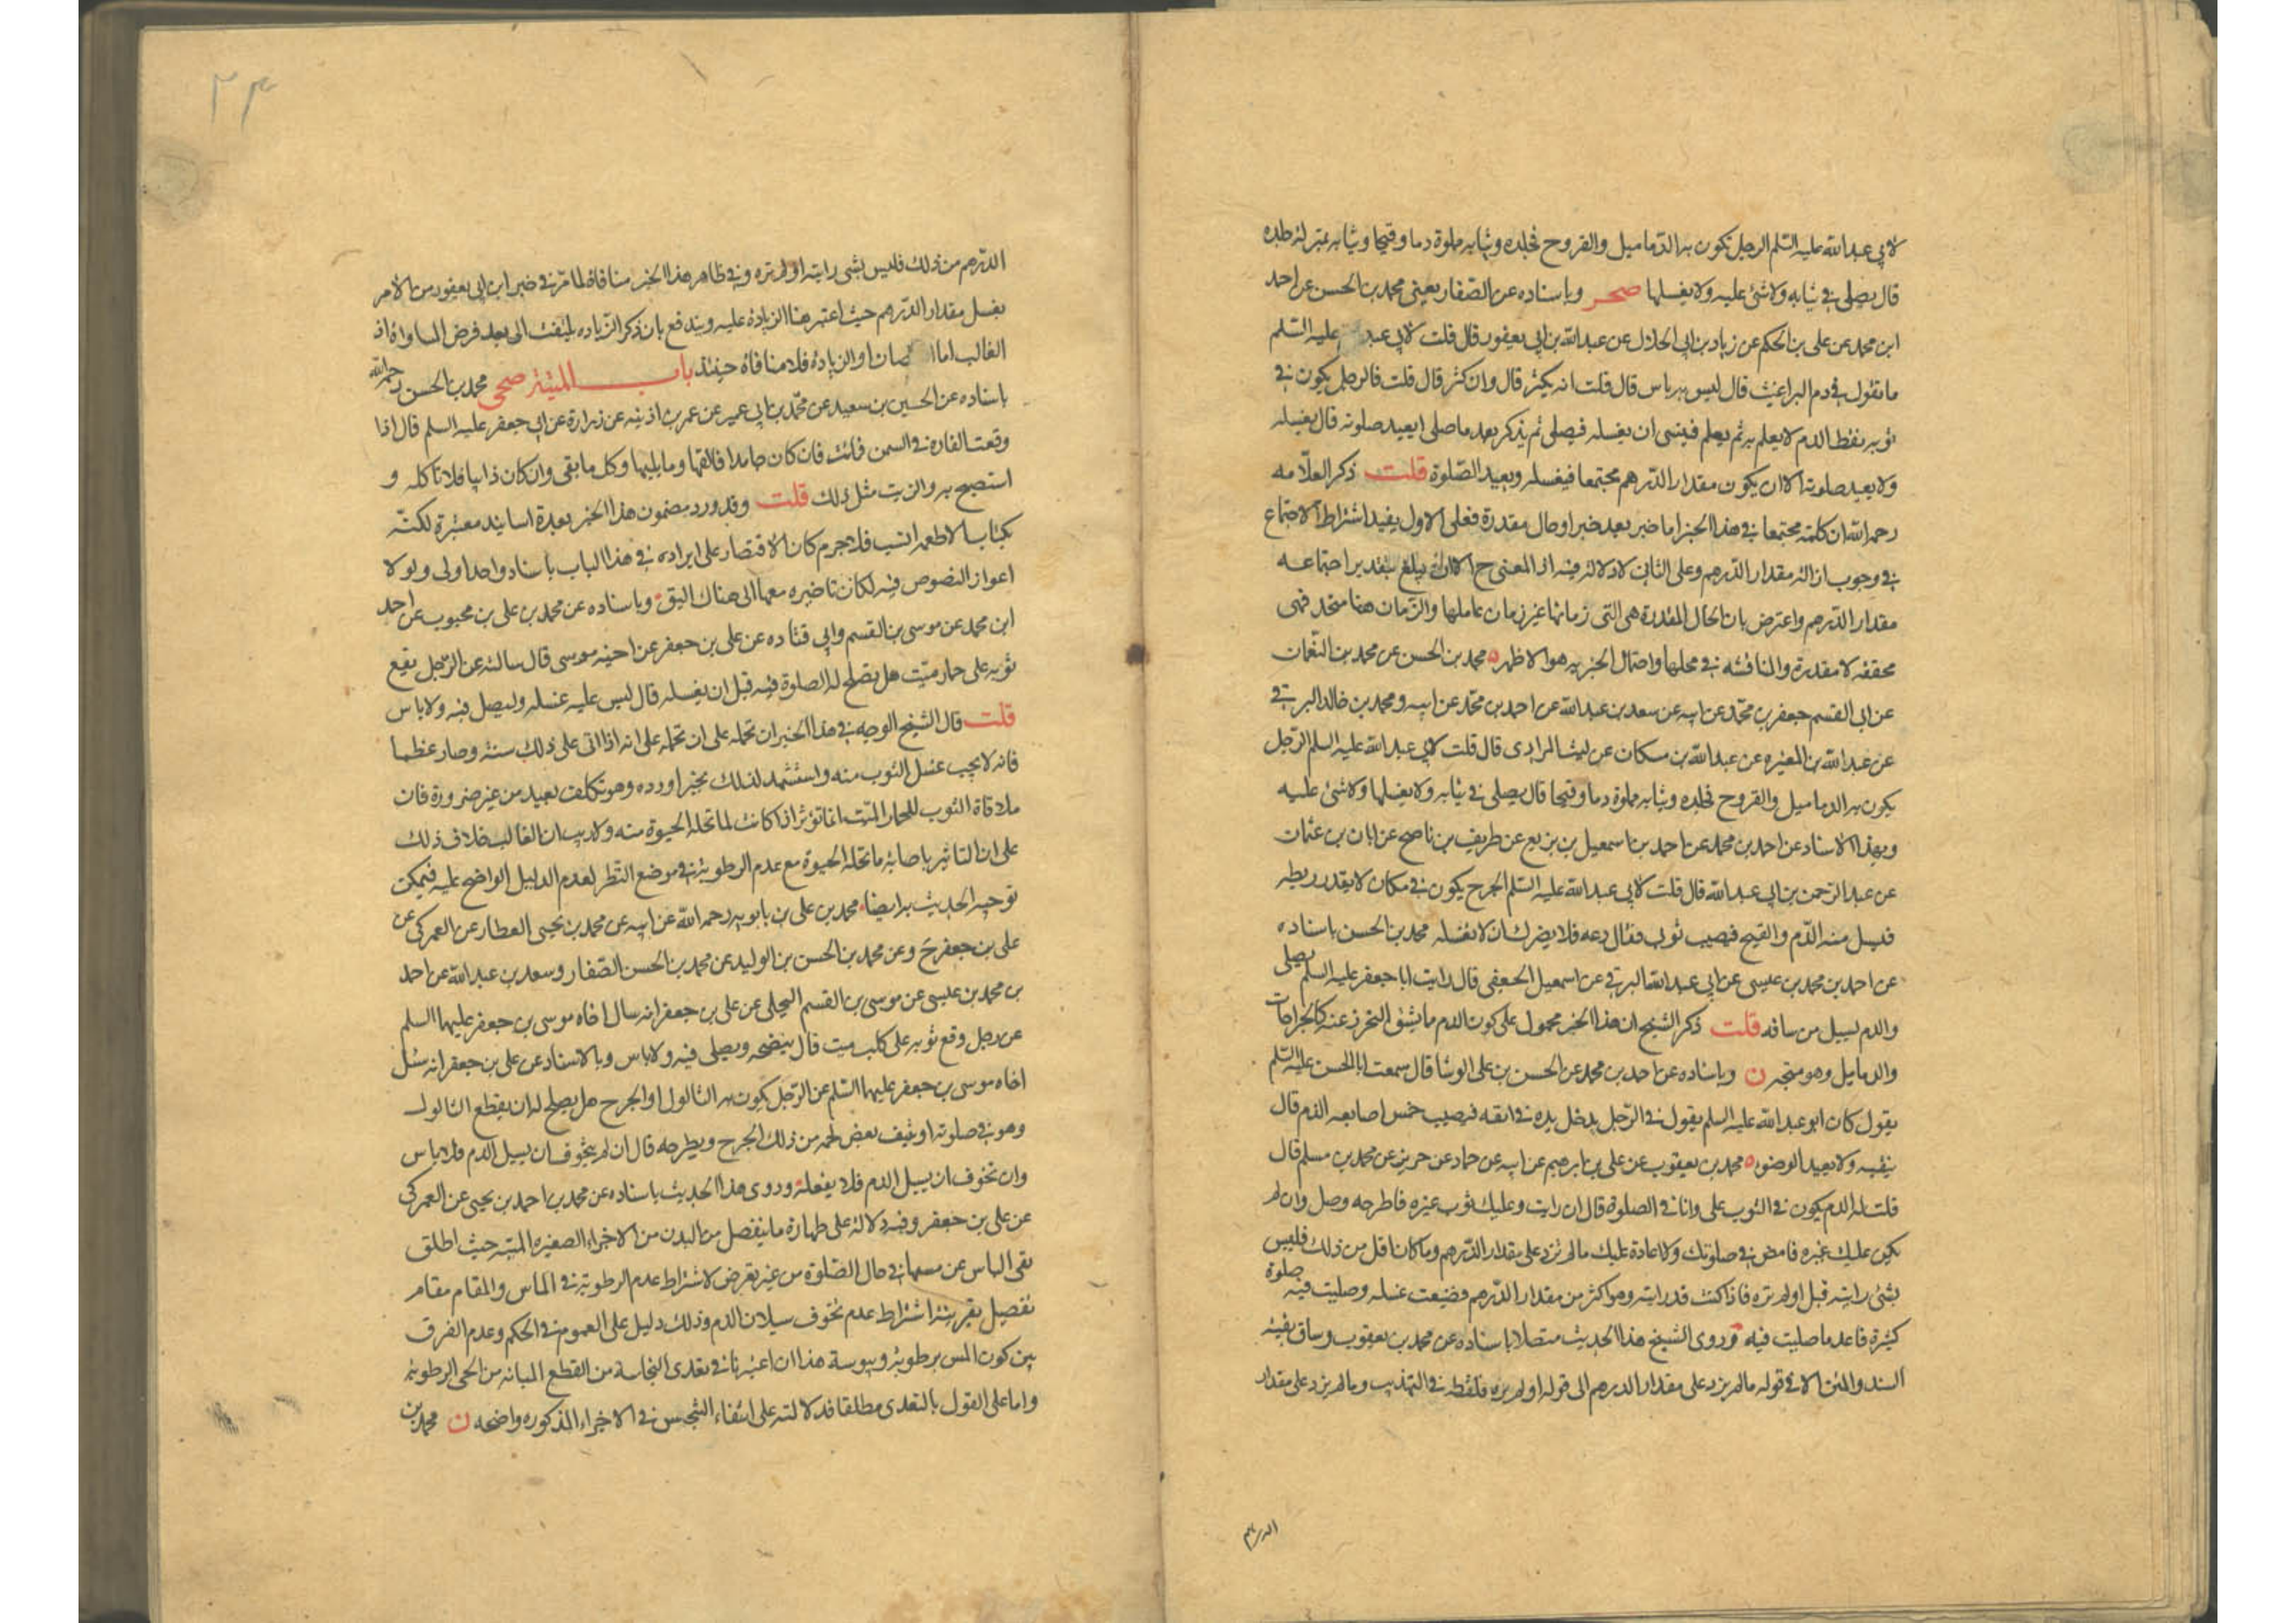 لابي عبد الله عليه السلم الرجل تكون به الدماميل والقروح فجلده وثيابه مملوة دما وقيحا وثيابه بمنزلة جلده
قال يصلي في ثيابه ولا شئ عليه ولا يغسلها صحر وباسناده عن الصفار يعني محمد بن الحسن عن احمد
ابن محمد عن علي بن الحكم عن زياد بن ابي الحلال عن عبد الله بن ابي يعفور قال قلت لابي عبد عليه السلم
ما تقول في دم البراغيث قال ليس به باس قال قلت انه يكثر قال وان كثر قال قلت فالرجل يكون في
ثوبه نقط الدم لا يعلم به ثم يعلم فينسى ان يغسله فيصلي ثم يذكر بعد ما صلى ايعيد صلوته قال يغسله
ولا يعيد صلوته الا ان يكون مقدار الدرهم مجتمعا فيغسله ويعيد الصلوة قلت ذكر العلامه
رحمه الله ان كلمة مجتمعا في هذا الخبر اما خبر بعد خبر او حال مقدرة فعلى الاول يفيد اشتراط الاجتماع
في وجوب ازالة مقدار الدرهم وعلى الثاني لا دلالة فيه اذ المعنى ح الا ان يبلغ بتقدير اجتماعه
مقدار الدرهم واعترض بان الحال المقدرة هي التي زمانها غير زمان عاملها والزمان هنا متحد فهي
محققه لا مقدرة والمناقشه في محلها واحتمال الخبريه هو الاظهر ه محمد بن الحسن عن محمد بن النعمان
عن ابي القسم جعفر بن محمد عن ابيه عن سعد بن عبد الله عن احمد بن محمد عن ابيه ومحمد بن خالد البرقي
عن عبد الله بن المغيره عن عبد الله بن مسكان عن ليث المرادي قال قلت لابي عبد الله عليه السلم الرجل
يكون به الدماميل والقروح فجلده وثيابه مملوة دما وقيحا قال يصلي في ثيابه ولا يغسلها ولا شئ عليه
وبهذا الاسناد عن احمد بن محمد عن احمد بن اسمعيل بن بزيع عن ظريف بن ناصح عن ابان بن عثمان
عن عبد الرحمن بن ابي عبد الله قال قلت لابي عبد الله عليه السلم الجرح يكون في مكان لا يقدر ربطه
فيسيل منه الدم والقيح فيصيب ثوبي فقال دعه فلا يضرك ان لا تغسله محمد بن الحسن باسناده
عن احمد بن محمد بن عيسى عن ابي عبد الله البرقي عن اسمعيل الجعفي قال رايت ابا جعفر عليه السلم يصلي
والدم يسيل من ساقه قلت ذكر الشيخ ان هذا الخبر محمول على كون الدم ما يشق التحرز عنه كالجراحات
والدماميل وهو متجه ن وباسناده عن احمد بن محمد عن الحسن بن علي الوشا قال سمعت ابا الحسن عليه السلم
يقول كان ابو عبد الله عليه السلم يقول في الرجل يدخل يده في انفه فيصيب خمس اصابعه الدم قال
ينقيه ولا يعيد الوضوء ه محمد بن يعقوب عن علي بن ابرهيم عن ابيه عن حماد عن حريز عن محمد بن مسلم قال
قلت له الدم يكون في الثوب علي وانا في الصلوة قال ان رايت وعليك ثوب غيره فاطرحه وصل وان لم
يكن عليك غيره فامض في صلوتك ولا اعادة عليك ما لم يزد على مقدار الدرهم وما كان اقل من ذلك فليس
بشئ رايته قبل او لم تره فاذا كنت قد رايته وهو اكثر من مقدار الدرهم فضيعت غسله وصليت فيه صلوة
كثيرة فاعد ما صليت فيه وروى الشيخ هذا الحديث متصلا باسناده عن محمد بن يعقوب وساق بقية
السند والمتن الا في قوله ما لم يزد على مقدار الدرهم الى قوله او لم تره فلفظه في التهذيب وما لم يزد على مقدار
الدرهم
٣٤
الدرهم من ذلك فليس بشي رايته او لم تره وفي ظاهر هذا الخبر منافاة لما مر في خبر ابن ابي يعفور من الامر
بغسل مقدار الدرهم حيث اعتبر هنا الزيادة عليه ويندفع بان ذكر الزياده يلتفت الى بعد فرض المساواة اذ
الغالب اما صان او الزيادة فلا منافاة حينئذ باب الميتة صحي محمد بن الحسن رحمه الله
باسناده عن الحسين بن سعيد عن محمد بن ابي عمير عن عمر بن اذينه عن زرارة عن ابي جعفر عليه السلم قال اذا
وقعت الفاره في السمن فماتت فان كان جامدا فالقها وما يليها وكل ما بقي وان كان ذايبا فلا تاكله و
استصبح به والزيت مثل ذلك قلت وقد ورد مضمون هذا الخبر بعدة اسانيد معتبرة لكنه
بكتاب الاطعمه انسب فلا جرم كان الاقتصار على ايراده في هذا الباب باسناد واحد اولى ولو لا
اعواز النصوص فيه لكان تاخيره معها الى هناك اليق وباسناده عن محمد بن علي بن محبوب عن احمد
ابن محمد عن موسى بن القسم وابي قتاده عن علي بن جعفر عن اخيه موسى قال سالته عن الرجل يقع
ثوبه على حمار ميت هل يصلح له الصلوة فيه قبل ان يغسله قال ليس عليه غسله وليصل فيه ولا باس
قلت قال الشيخ الوجه في هذا الخبر ان نحمله على ان نحمله على انه اذا اتى على ذلك سنة وصار عظما
فانه لا يجب غسل الثوب منه واستشهد لذلك بخبر اورده وهو تكلف بعيد من غير ضرورة فان
ملاقاة الثوب للحمار الميت انما تؤثر اذا كانت لما تحله الحيوة منه ولا ريب ان الغالب خلاف ذلك
على ان التاثير باصابة ما تحله الحيوة مع عدم الرطوبة في موضع النظر لعدم الدليل الواضح عليه فيمكن
توجيه الحديث به ايضا محمد بن علي بن بابويه رحمه الله عن ابيه عن محمد بن يحيى العطار عن العمركي عن
علي بن جعفر ح وعن محمد بن الحسن بن الوليد عن محمد بن الحسن الصفار وسعد بن عبد الله عن احمد
بن محمد بن عيسى عن موسى بن القسم البجلي عن علي بن جعفر انه سال اخاه موسى بن جعفر عليهما السلم
عن رجل وقع ثوبه على كلب ميت قال ينضحه ويصلي فيه ولا باس وبالاسناد عن علي بن جعفر انه سئل
اخاه موسى بن جعفر عليهما السلم عن الرجل يكون به الثالول او الجرح هل يصلح له ان يقطع الثالول
وهو في صلوته او ينتف بعض لحمه من ذلك الجرح ويطرحه قال ان لم يتخوف ان يسيل الدم فلا باس
وان تخوف ان يسيل الدم فلا يفعله وروى هذا الحديث باسناده عن محمد بن احمد بن يحيى عن العمركي
عن علي بن جعفر وفيه دلالة على طهارة ما ينفصل من البدن من الاجزاء الصغيره الميته حيث اطلق
نفي الباس عن مسها في حال الصلوة من غير تعرض لاشتراط عدم الرطوبة في الماس والمقام مقام
تفصيل بقرينة اشتراط عدم تخوف سيلان الدم وذلك دليل على العموم في الحكم وعدم الفرق
بين كون المس برطوبة ويبوسة هذا ان اعتبرنا في تعدي النجاسة من القطع المبانه من الحي الرطوبة
واما على القول بالتعدي مطلقا فدلالته على انتفاء التنجيس في الاجزاء المذكوره واضحه ن محمد بن